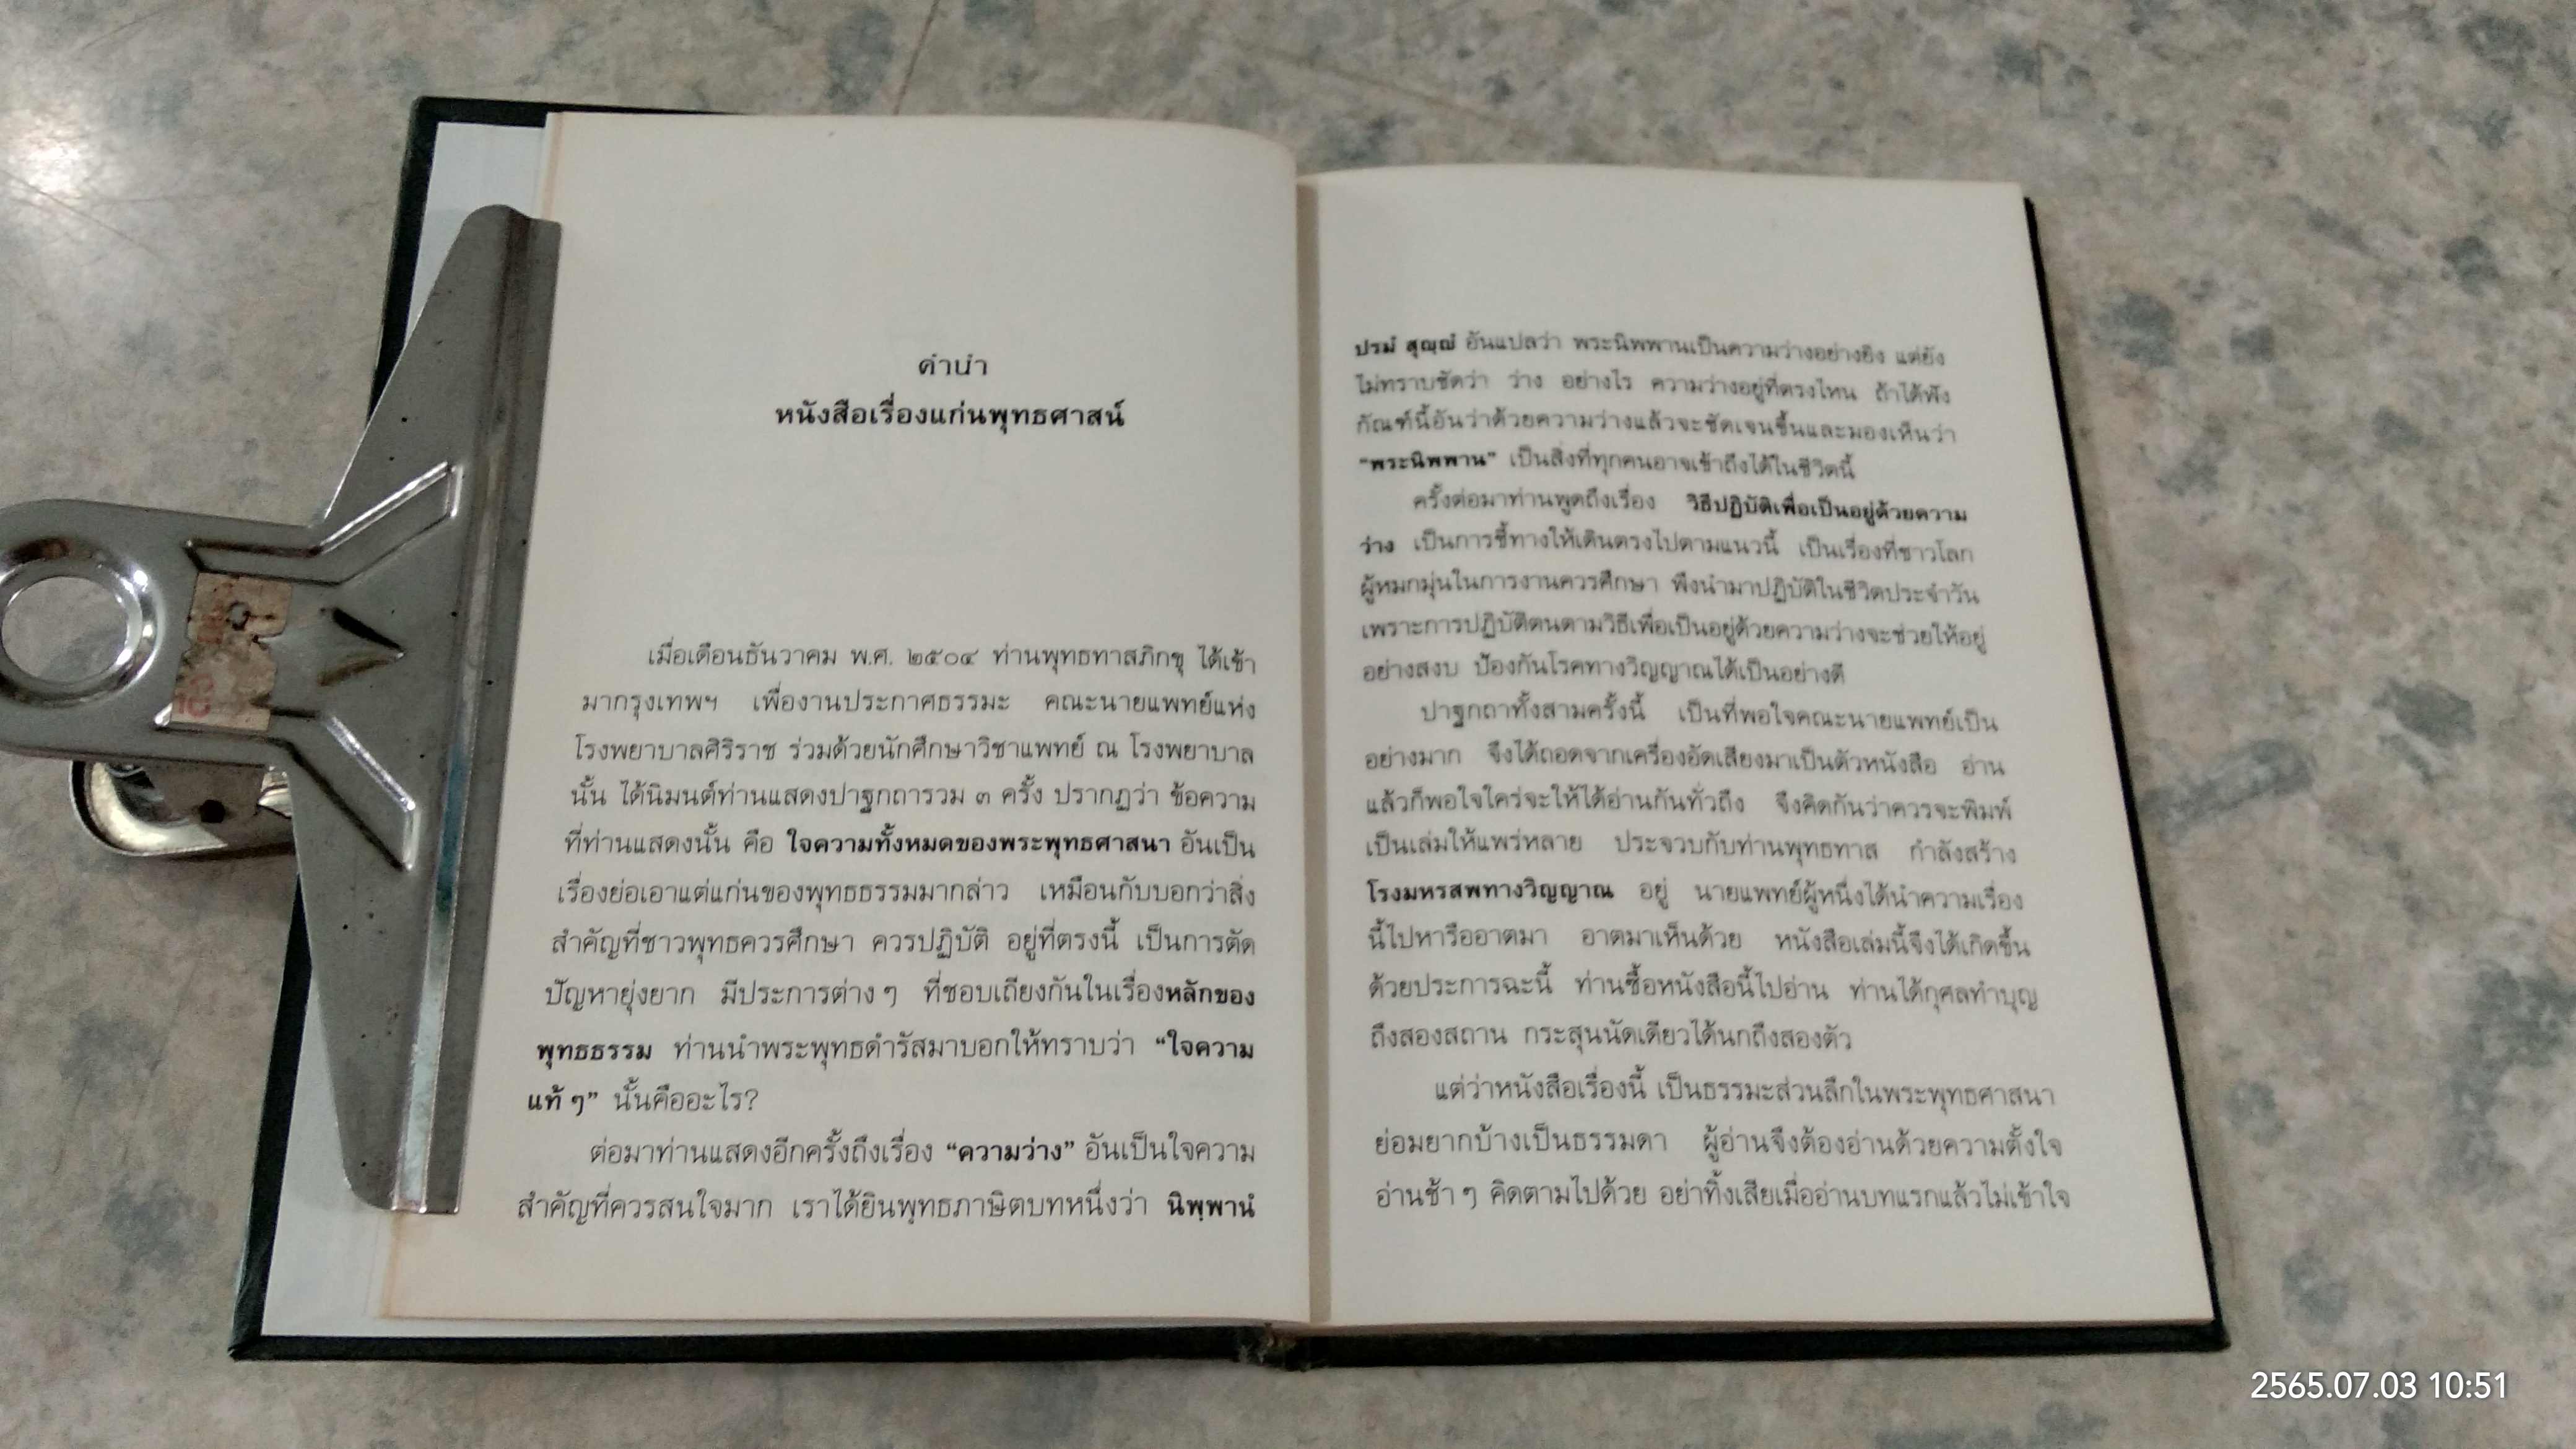 คำนำ
หนังสือเรื่องแก่นพุทธศาสน์
เมื่อเดือนธันวาคม พ.ศ. ๒๕๐๔ ท่านพุทธทาสภิกขุ ได้เข้า
มากรุงเทพฯ เพื่องานประกาศธรรมะ คณะนายแพทย์แห่ง
โรงพยาบาลศิริราช ร่วมด้วยนักศึกษาวิชาแพทย์ ณ โรงพยาบาล
นั้น ได้นิมนต์ท่านแสดงปาฐกถารวม ๓ ครั้ง ปรากฏว่า ข้อความ
ที่ท่านแสดงนั้น คือ ใจความทั้งหมดของพระพุทธศาสนา อันเป็น
เรื่องย่อเอาแต่แก่นของพุทธธรรมมากล่าว เหมือนกับบอกว่าสิ่ง
สำคัญที่ชาวพุทธควรศึกษา ควรปฏิบัติ อยู่ที่ตรงนี้ เป็นการตัด
ปัญหายุ่งยาก มีประการต่าง ๆ ที่ชอบเถียงกันในเรื่องหลักของ
พุทธธรรม ท่านนำพระพุทธดำรัสมาบอกให้ทราบว่า “ใจความ
แท้ ๆ” นั้นคืออะไร?
ต่อมาท่านแสดงอีกครั้งถึงเรื่อง “ความว่าง” อันเป็นใจความ
สำคัญที่ควรสนใจมาก เราได้ยินพุทธภาษิตบทหนึ่งว่า นิพฺพานํ
ปรมํ สุญฺญํ อันแปลว่า พระนิพพานเป็นความว่างอย่างยิ่ง แต่ยัง
ไม่ทราบชัดว่า ว่าง อย่างไร ความว่างอยู่ที่ตรงไหน ถ้าได้ฟัง
กัณฑ์นี้อันว่าด้วยความว่างแล้วจะชัดเจนขึ้นและมองเห็นว่า
“พระนิพพาน” เป็นสิ่งที่ทุกคนอาจเข้าถึงได้ในชีวิตนี้
ครั้งต่อมาท่านพูดถึงเรื่อง วิธีปฏิบัติเพื่อเป็นอยู่ด้วยความ
ว่าง เป็นการชี้ทางให้เดินตรงไปตามแนวนี้ เป็นเรื่องที่ชาวโลก
ผู้หมกมุ่นในการงานควรศึกษา พึงนำมาปฏิบัติในชีวิตประจำวัน
เพราะการปฏิบัติตนตามวิธีเพื่อเป็นอยู่ด้วยความว่างจะช่วยให้อยู่
อย่างสงบ ป้องกันโรคทางวิญญาณได้เป็นอย่างดี
ปาฐกถาทั้งสามครั้งนี้ เป็นที่พอใจคณะนายแพทย์เป็น
อย่างมาก จึงได้ถอดจากเครื่องอัดเสียงมาเป็นตัวหนังสือ อ่าน
แล้วก็พอใจใคร่จะให้ได้อ่านกันทั่วถึง จึงคิดกันว่าควรจะพิมพ์
เป็นเล่มให้แพร่หลาย ประจวบกับท่านพุทธทาส กำลังสร้าง
โรงมหรสพทางวิญญาณ อยู่ นายแพทย์ผู้หนึ่งได้นำความเรื่อง
นี้ไปหารืออาตมา อาตมาเห็นด้วย หนังสือเล่มนี้จึงได้เกิดขึ้น
ด้วยประการฉะนี้ ท่านซื้อหนังสือนี้ไปอ่าน ท่านได้กุศลทำบุญ
ถึงสองสถาน กระสุนนัดเดียวได้นกถึงสองตัว
แต่ว่าหนังสือเรื่องนี้ เป็นธรรมะส่วนลึกในพระพุทธศาสนา
ย่อมยากบ้างเป็นธรรมดา ผู้อ่านจึงต้องอ่านด้วยความตั้งใจ
อ่านช้า ๆ คิดตามไปด้วย อย่าทิ้งเสียเมื่ออ่านบทแรกแล้วไม่เข้าใจ
2565.07.03 10:51